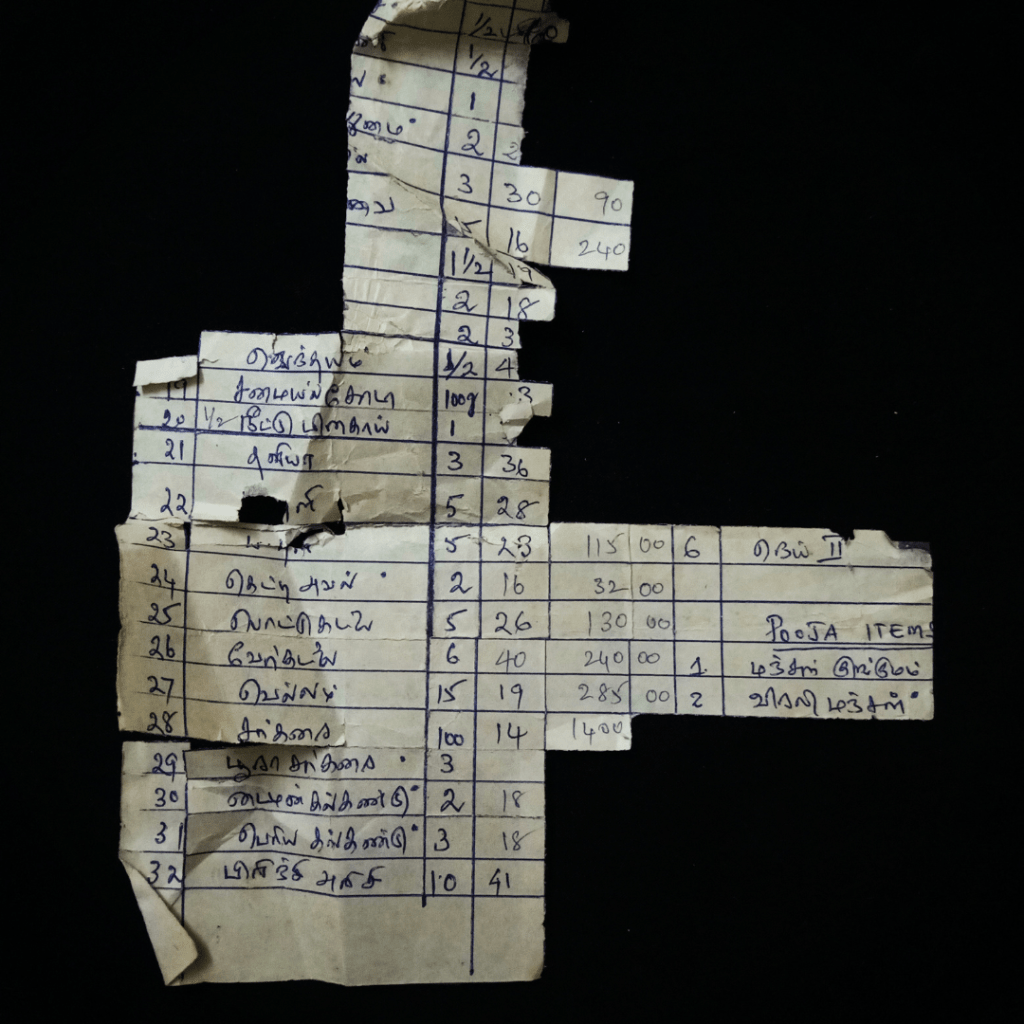 1/2
1/2
1
2 2
3 30 90
16 240
1 1/2 19
2 18
2 3
வெந்தயம் 1/2 4
19 சமையல் சோடா 100g 3
20 1/2 நீட்டு மிளகாய் 1
21 தனியா 3 36
22 ளி 5 28
23 5 23 115 00 6 நெய் II
24 கெட்டி அவல் 2 16 32 00
25 பொட்டுகடலை 5 26 130 00 POOJA ITEMS
26 வேர்கடலை 6 40 240 00 1 மஞ்சள் குங்குமம்
27 வெல்லம் 15 19 285 00 2 விரலி மஞ்சள்
28 சர்க்கரை 100 14 1400
29 பூரா சர்க்கரை 3
30 டைமன் கல்கண்டு 2 18
31 பெரிய கல்கண்டு 3 18
32 அரிசி 10 41